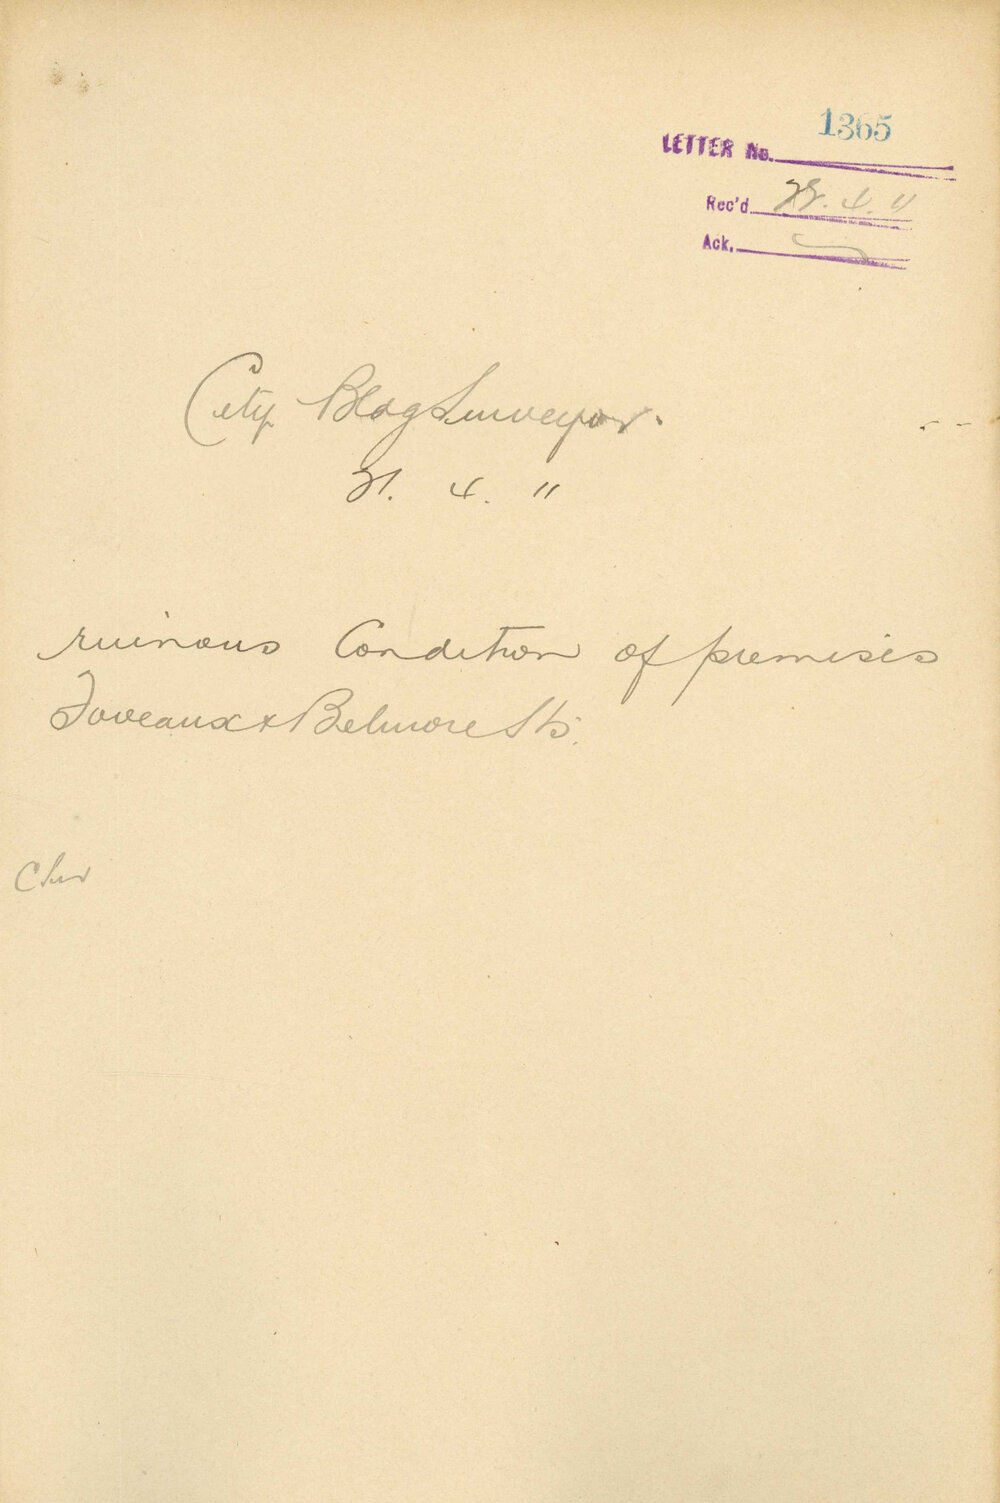 1365
LETTER No.
Rec'd 28. 4. 11
Ack.
City Bldg Surveyor.
21. 4. 11
ruinous Condition of premises
Foveaux & Belmore Sts.